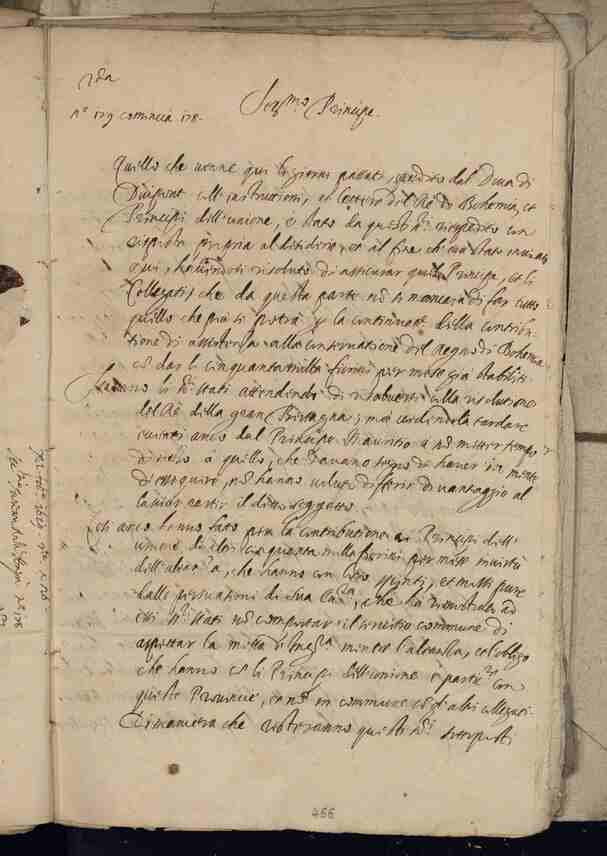 2da
N.o 179 comincia 178.
Ser.mo Principe.
Quello che venne qui li giorni passati, spedito dal Duca di
Dupont coll'instruttioni, et lettere del Rè di Bohemia, et
Principi dell'unione, è stato da questi ss.ri rispedito con
risposta propria al desiderio, et al fine che era stato inviato
qui, havendosi risoluto di assicurar quel Principe, et li
Collegati, che da questa parte nò si mancarà di far tutto
quello che più si potrà per la continuatne della contribu-
tione di assistenza alla conservatione del Regno di Bohemia
cò dar li cinquantamilla fiorini per mese già stabiliti.
Stavano li ss.ri stati attendendo di risolversi alla risolutione
del Rè della gran Bertagna; mà vedendola tardare
eccitati anco dal Principe Mauritio a nò metter tempo
di mezo à quello, che havano de haver in mente
di esseguir, nò hanno voluto differir davantaggio al
lassar partir il ditto soggetto.
Et anco hanno fatto per la contributione ai Principi dell'
unione di altri cinquanta milla fiorini per mese in virtù
dell'alleanza, che hanno con loro spinti, et mossi pure
dalle persuasioni di sua Ecc.a, che ha rimostrato ad
essi ss.ri stati nò comportar il servitio commune di
aspettar la mossa d'Ingh.a mentre l'alleanza, et obligo
che hanno cò li Principi dell'unione è partic.re con
queste Provincie, et nò in commune cò gl'altri collegati.
Dimaniera che resteranno questi ss.ri
466